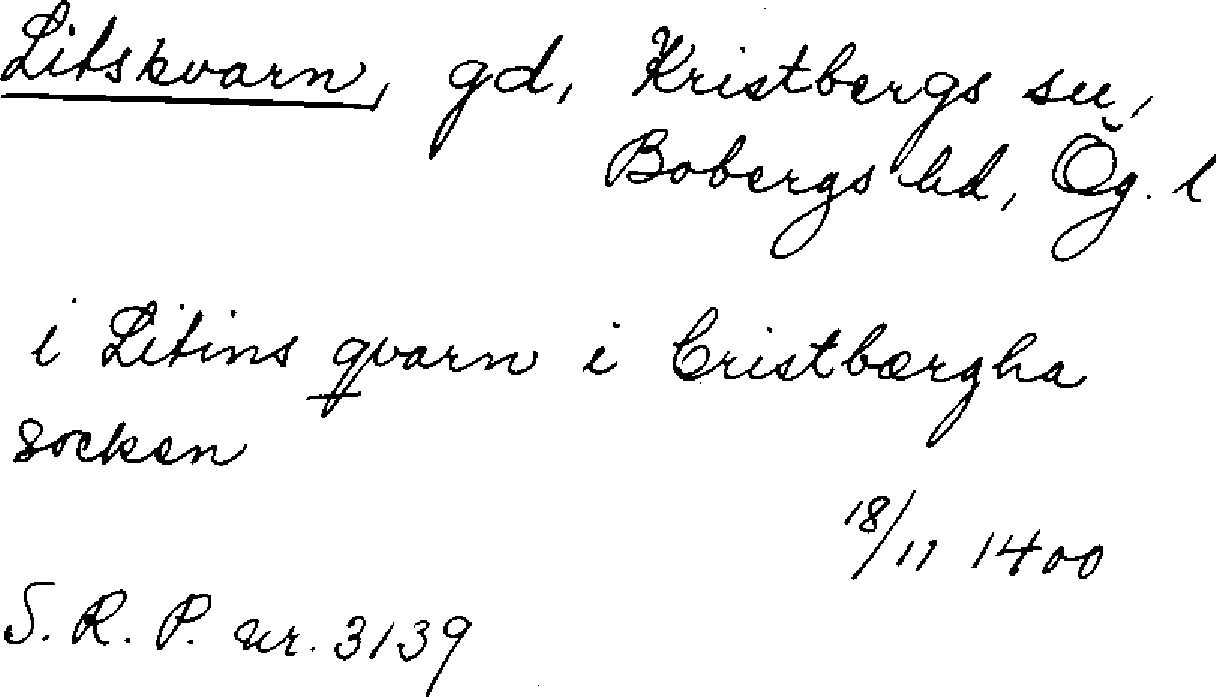 Litskvarn, gd, Kristbergs sn,
Bobergs hd, Ög. l
i Litins qvarn i Cristbærgha
socken
18/11 1400
S. R. P. nr. 3139